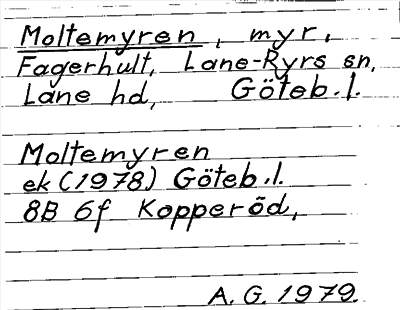 Moltemyren, myr,
Fagerhult, Lane-Ryrs sn,
Lane hd, Göteb.l.
Moltemyren
ek (1978) Göteb.l.
8B 6f Kopperöd,
A.G. 1979.